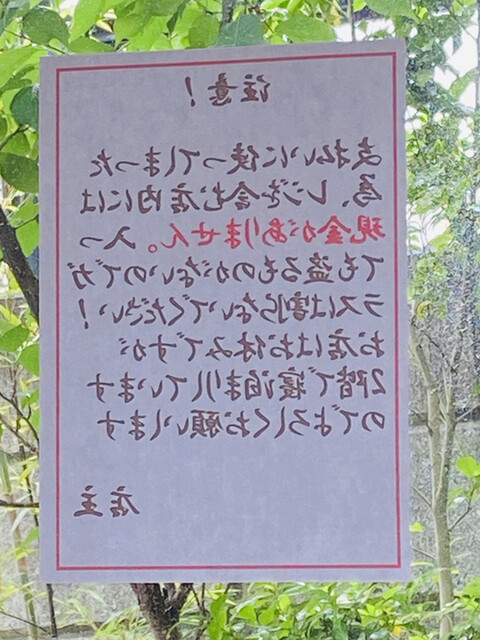 注意！
支払いに使ってしまった
為、レジを含む店内には
現金がありません。入っ
ても盗るものがないのでガ
ラスは割らないでください！
お店はお休みですが
2階で寝泊まりしています
のでよろしくお願いします
店主